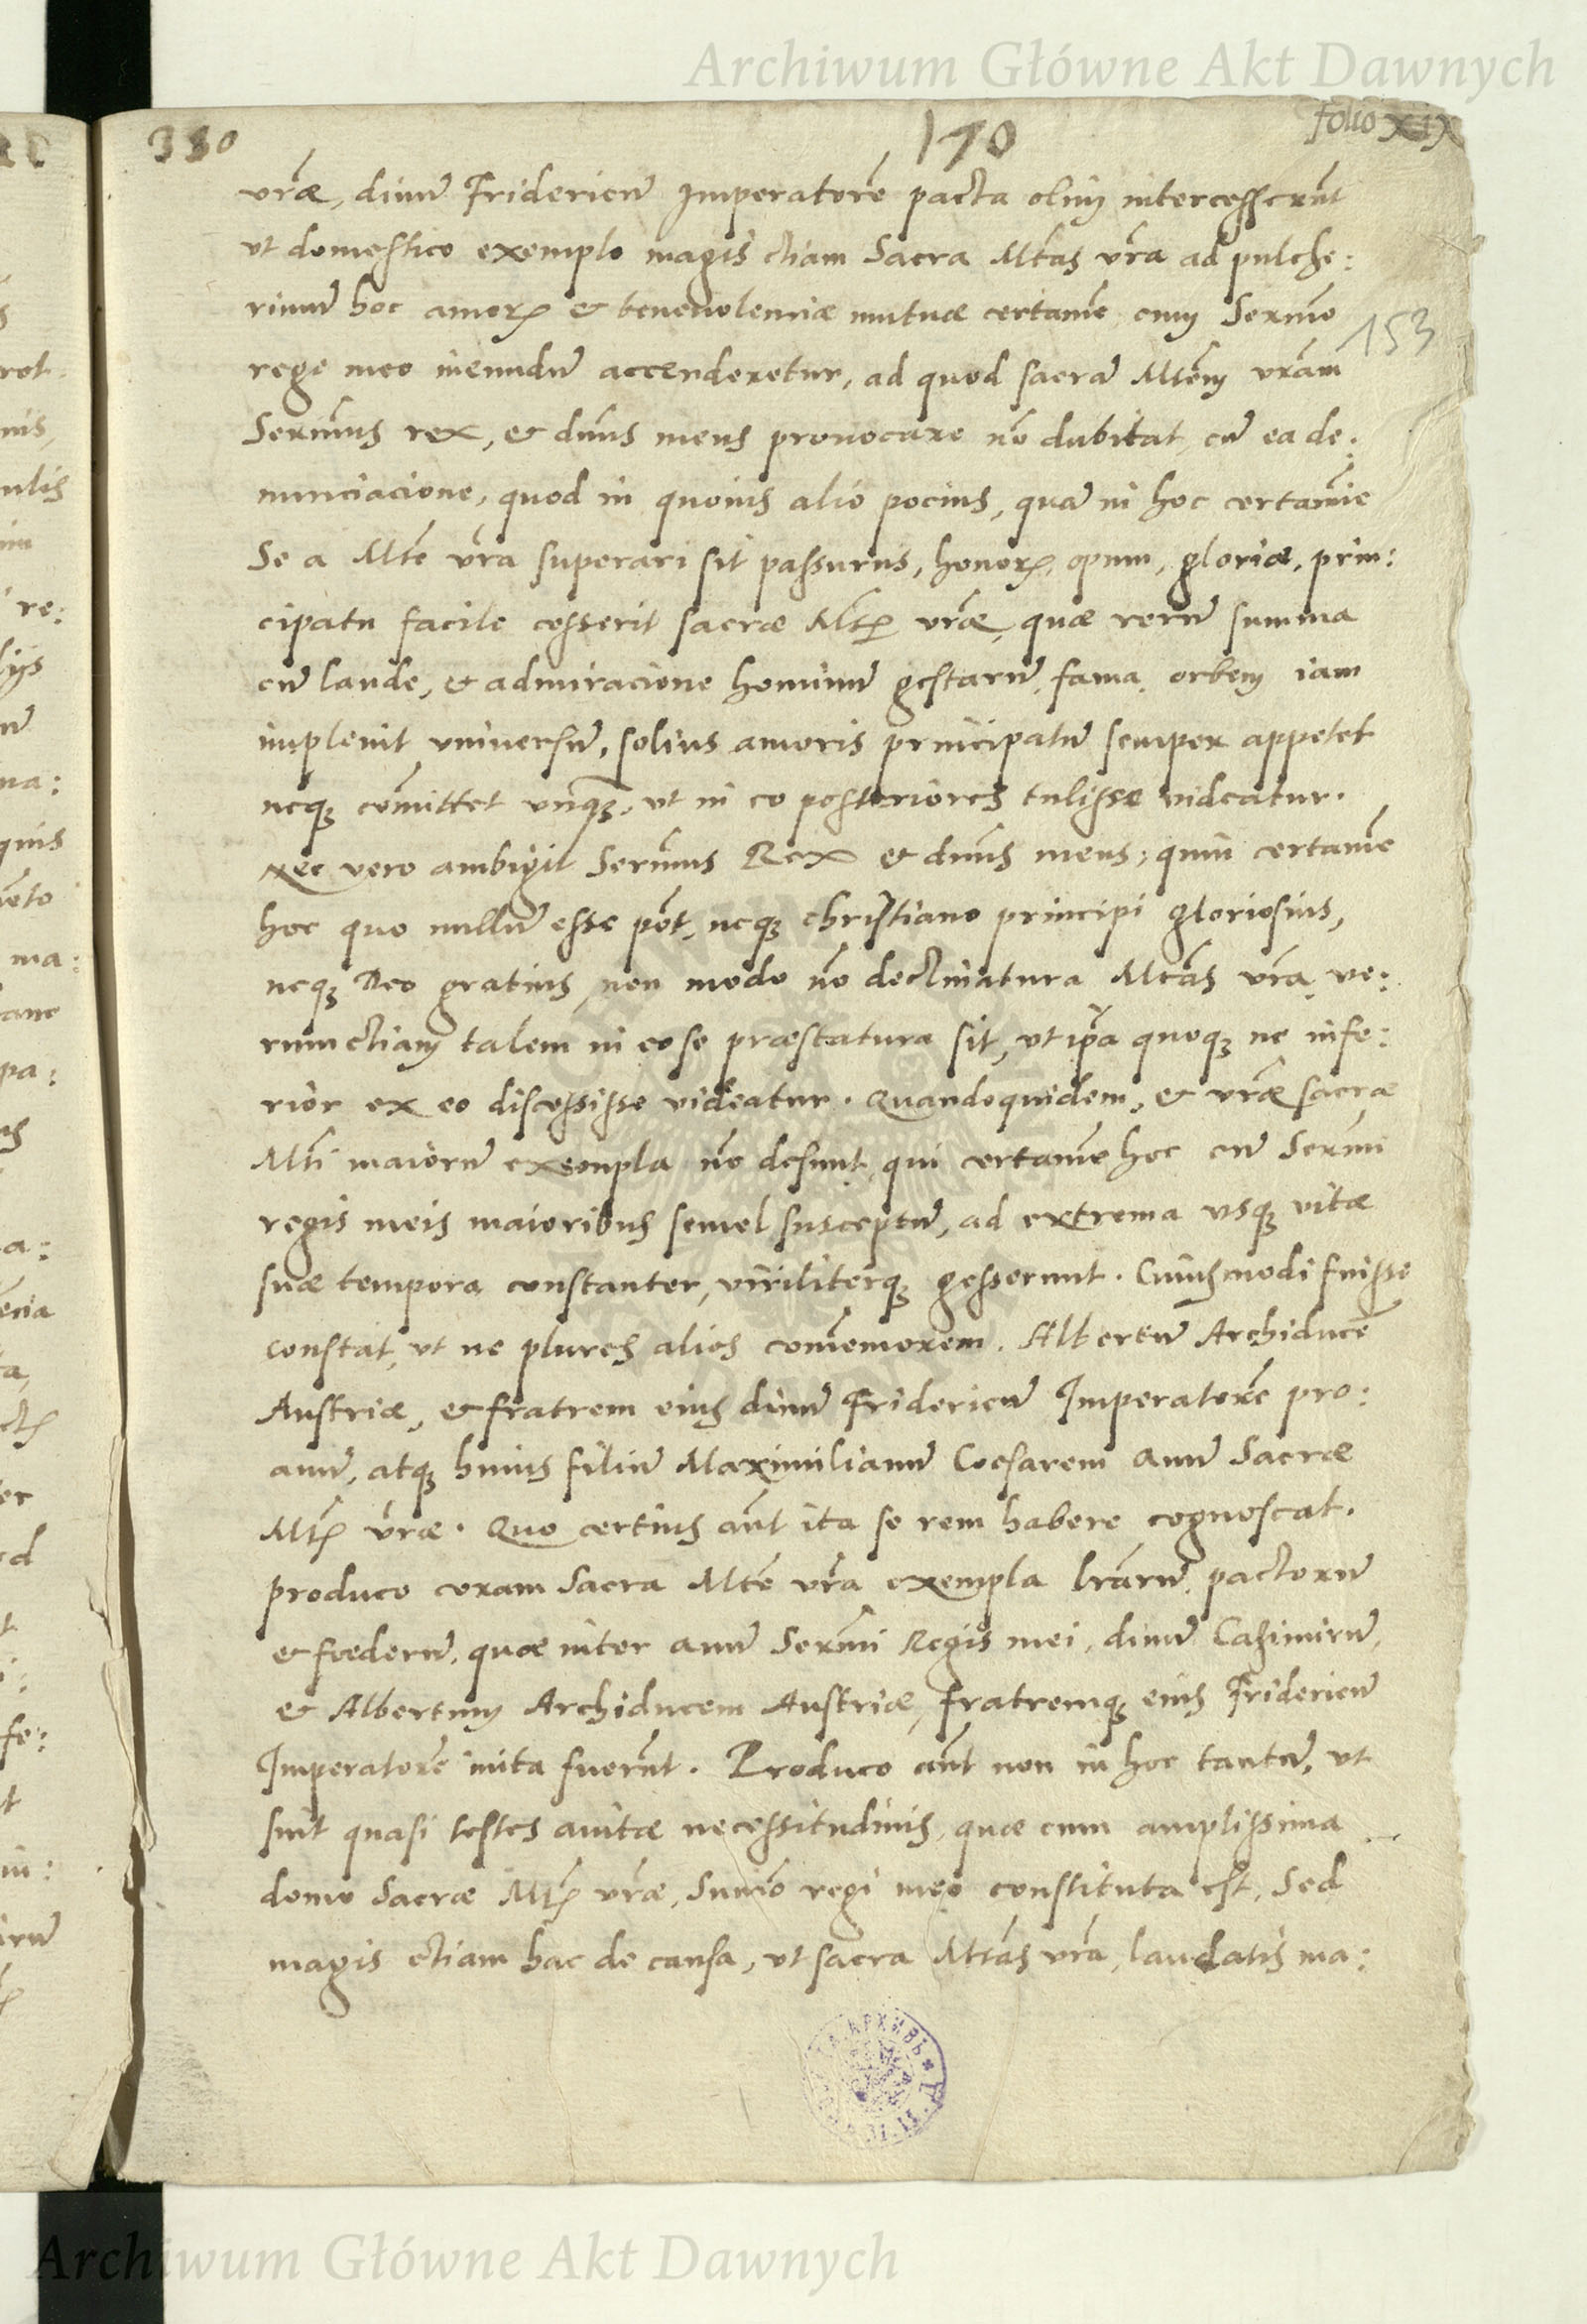 Archiwum Główne Akt Dawnych
folio xix
330
170
vr̃æ, diuũ Fridericũ Imperatorẽ pacta olim intercesserũt
vt domestico exemplo magis etiam Sacra Mtas vr̃a ad pulche:
rimũ hoc amoris & beneuolentiæ mutuæ certamẽ cum Serẽmo
153
rege meo ineundũ accenderetur, ad quod sacrã Mtẽm vrãm
Serẽmus rex, & dñus meus prouocare nõ dubitat, cũ ea de:
nunciacione, quod in quouis alio pocius, quã in hoc certamĩe
Se a Mtẽ vr̃a superari sit passurus, honoris, opum, gloriæ, prin:
cipatu facile cesserit sacræ Mtis vr̃æ, quæ rerũ summa
cũ laude, & admiracione hominũ gestarũ, fama orbem iam
impleuit vniuersũ, solius amoris principatũ semper appetet
neq; cõmittet vnq̃, vt in eo posteriores tulisse videatur.
Nec vero ambigit Serẽmus Rex & dñus meus, quin certamẽ
hoc quo nullũ esse põt, neq; christiano principi gloriosius,
neq; Deo gratius, non modo nõ declinatura Mtas vr̃a, ve:
rum etiam talem in eo se præstatura sit, vt ip̃a quoq; ne infe:
rior ex eo discessisse videatur. Quandoquidem, & vr̃æ sacræ
Mti maiorũ exempla nõ desunt, qui certamẽ hoc cũ Serẽmi
regis meis maioribus semel susceptũ, ad extrema vsq; vitæ
suæ tempora constanter, viriliterq; gesserunt. Cuiusmodi fuisse
constat, vt ne plures alios com̃emorem, Albertũ Archiducẽ
Austriæ, & fratrem eius diuũ Fridericũ Imperatorẽ pro:
auũ, atq; huius filiũ Maximilianũ Cæsarem auũ Sacræ
Mtis vr̃æ. Quo certius aũt ita se rem habere cognoscat.
produco coram Sacra Mtẽ vr̃a exempla lr̃arũ, pactorũ
& fœderũ, quæ inter auũ Serẽmi Regis mei, diuũ Casimirũ,
& Albertum Archiducem Austriæ, fratremq; eius Fridericũ
Imperatorẽ inita fuerũt. Produco aũt non in hoc tantũ, vt
sint quasi testes auitæ necessitudinis, quæ cum amplissima
domo Sacræ Mtis vr̃æ, regi meo constituta est, Sed
magis etiam hac de causa, vt sacra Mtas vr̃a, laudatis ma:
Archiwum Główne Akt Dawnych